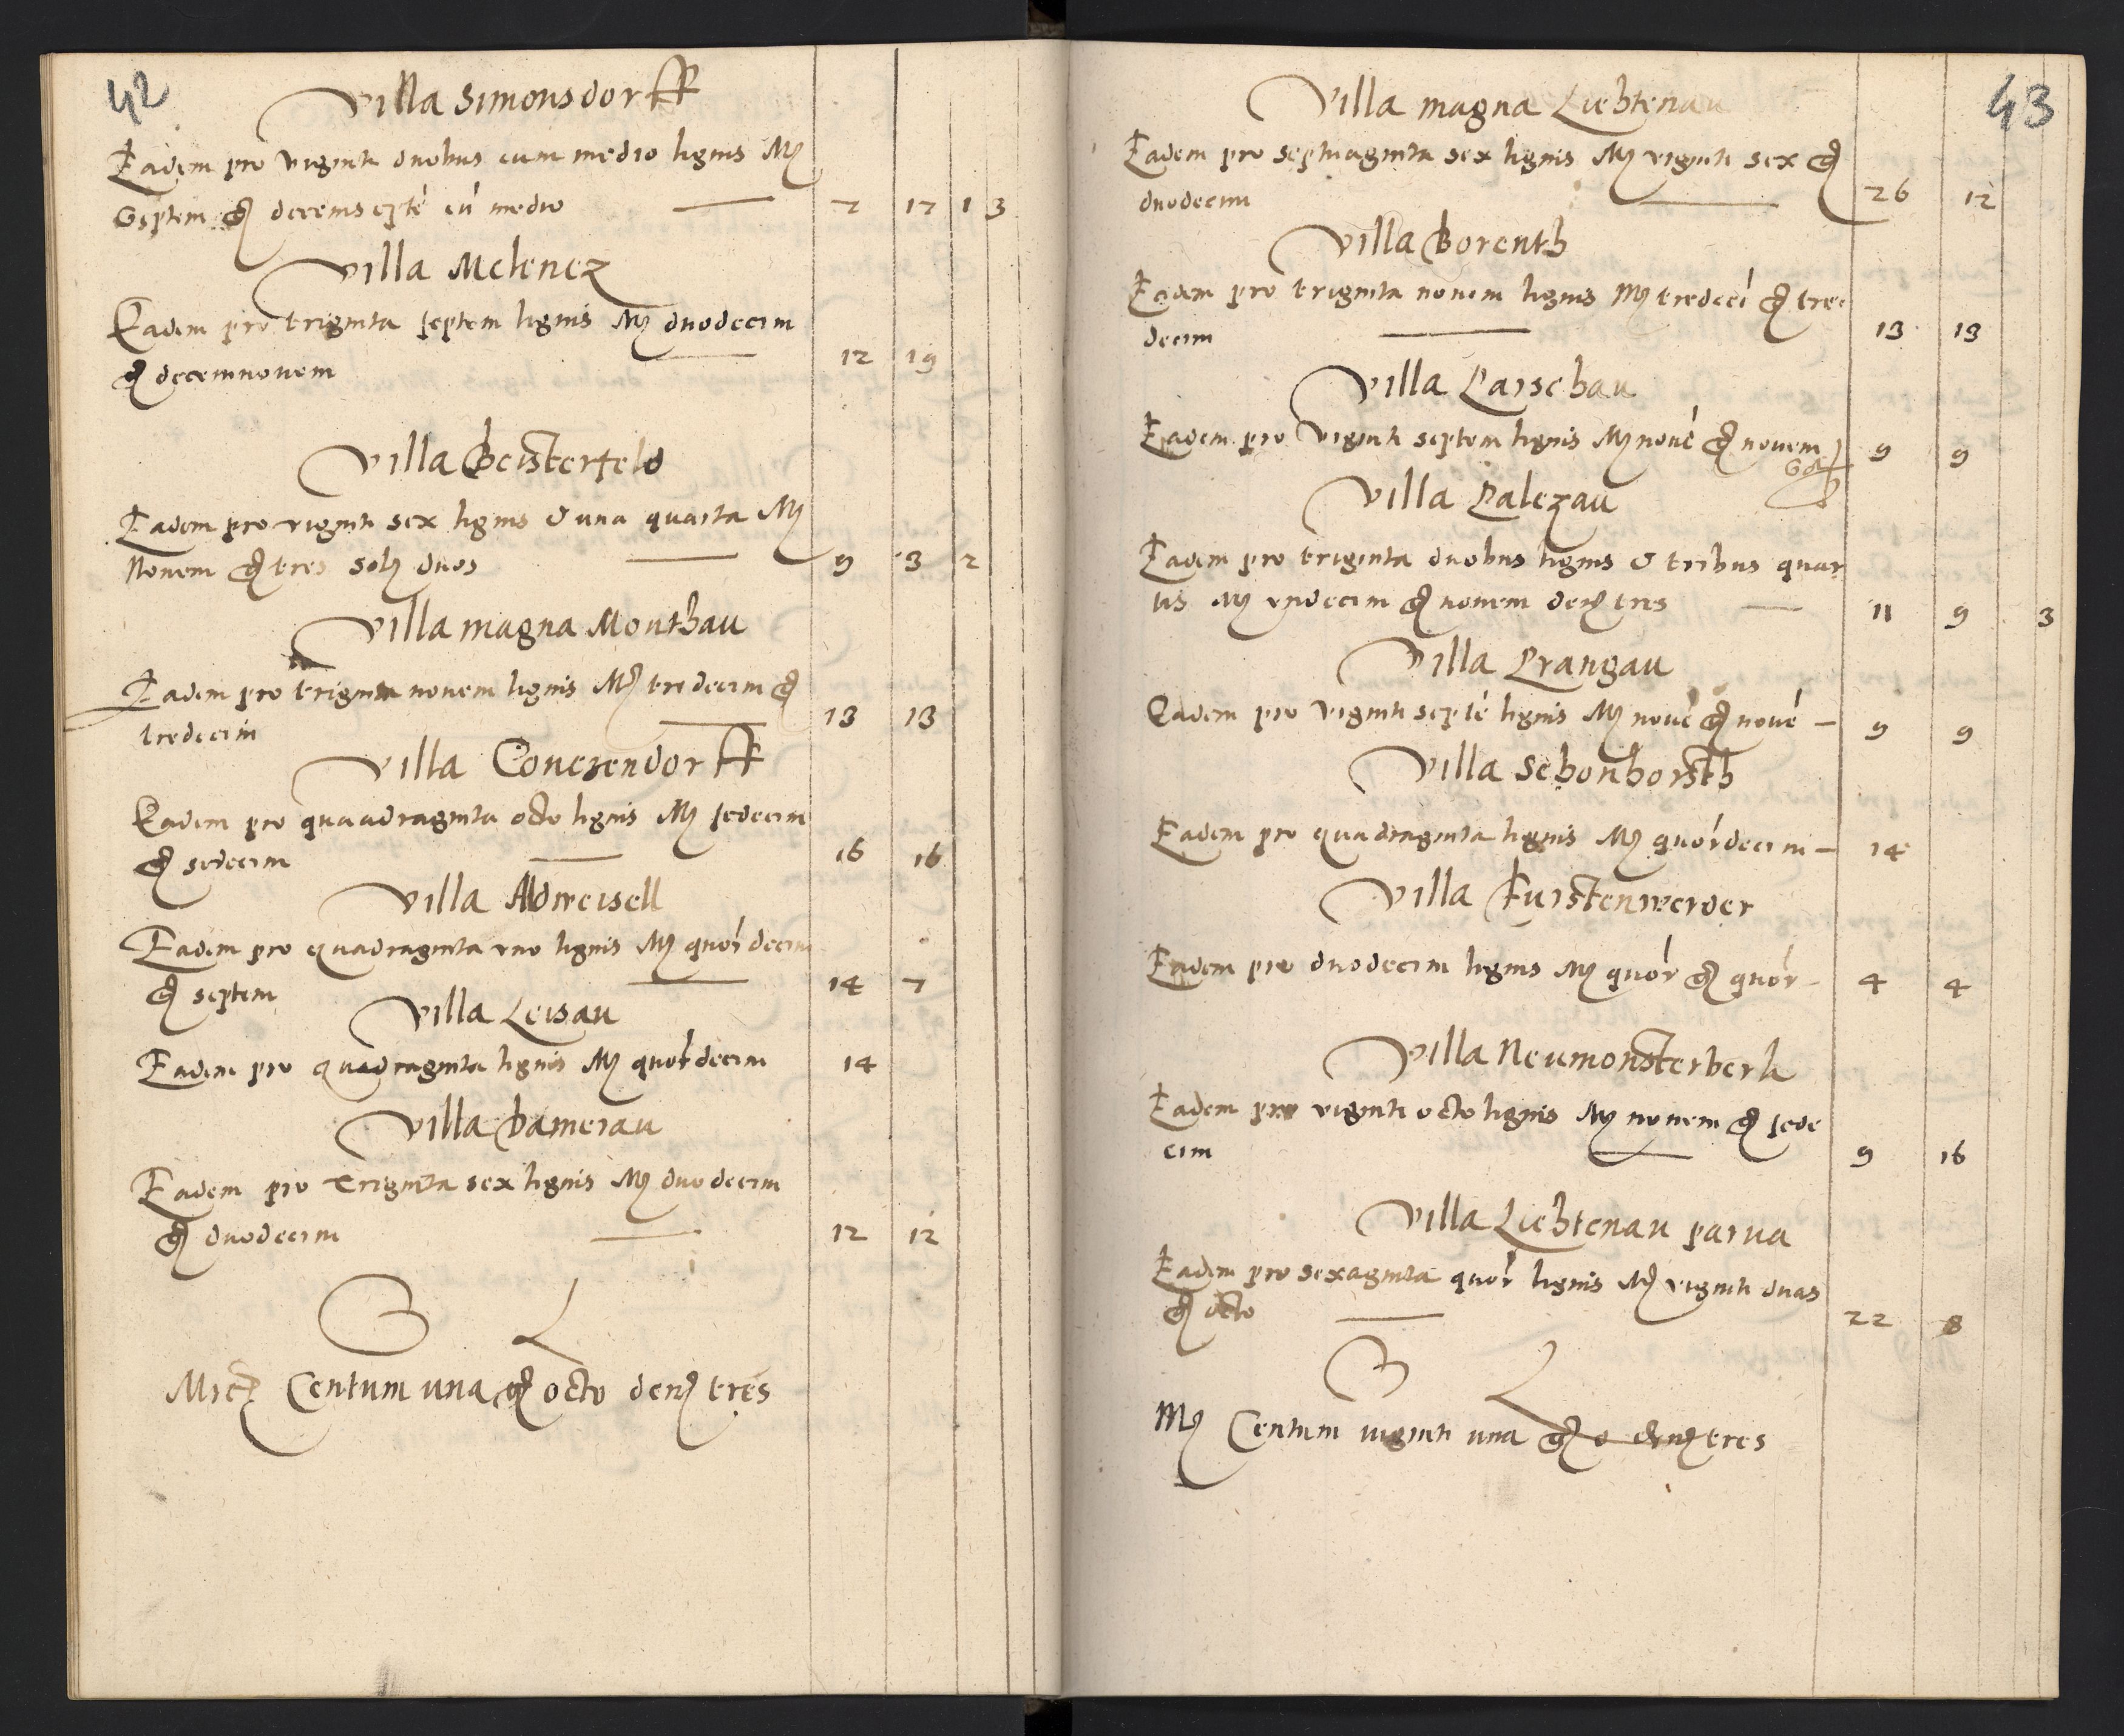 42
Villa Simonsdorff
Eadem pro viginti duobus cum medio lignis M
Septem g decemsepte cu medio — 7 17 1 3
Villa Melencz
Eadem pro triginta septem lignis M duodecim
g decemnovem — 12 19
Villa Beisterfeld
Eadem pro viginti sex lignis & una quarta M
Novem g tres sol duos — 9 3 2
Villa magna Monthau
Eadem pro triginta novem lignis M tredecim g
tredecim — 13 13
Villa Conczendorff
Eadem pro quaadraginta octo lignis M sedecim
g sedecim — 16 16
Villa Aldweisell
Eadem pro quadraginta uno lignis M quordecim
g septem — 14 7
Villa Leisau
Eadem pro quadraginta lignis M quordecim 14
Villa Damerau
Eadem pro triginta sex lignis M duodecim
g duodecim — 12 12
Mrc Centum una g octo den tres
43
Villa magna Liebtenau
Eadem pro septuaginta sex lignis M viginti sex g
duodecim — 26 12
Villa Borenth
Eadem pro triginta novem lignis M tredeci g tre
decim — 13 13
Villa Parschau
Eadem pro viginti septem lignis M nove g novem 9 9
Villa Palczau
Eadem pro triginta duobus lignis & tribus quar
tis M undecim g novem den tres — 11 9 3
Villa Prangau
Eadem pro viginti septe lignis M nove g nove — 9 9
Villa Schonhorsth
Eadem pro quadraginta lignis M quordecim — 14
Villa Furstenwerder
Eadem pro duodecim lignis M quor g quor — 4 4
Villa Neumonsterberk
Eadem pro viginti octo lignis M novem g sede
cim — 9 16
Villa Liebtenau parva
Eadem pro sexaginta quor lignis M viginti duas
g octo — 22 8
M Centum viginti una g den tres